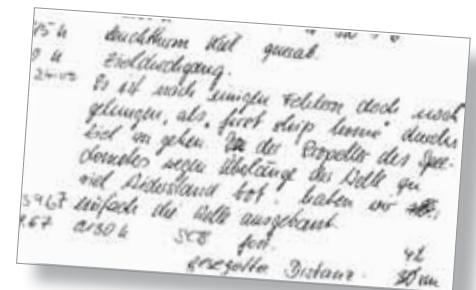 45 h Leuchtturm Kiel querab.
0 h Zieldurchgang.
Es ist nach einigen Fehlern doch noch
gelungen, als "first ship home" durchs
Ziel zu gehen. Da der Propeller des Spee-
dometers wegen Überlänge der Welle zu
viel Widerstand bot, haben wir
einfach die Welle ausgebaut.
0130 h SCB fest. 42
gesegelte Distanz: nm